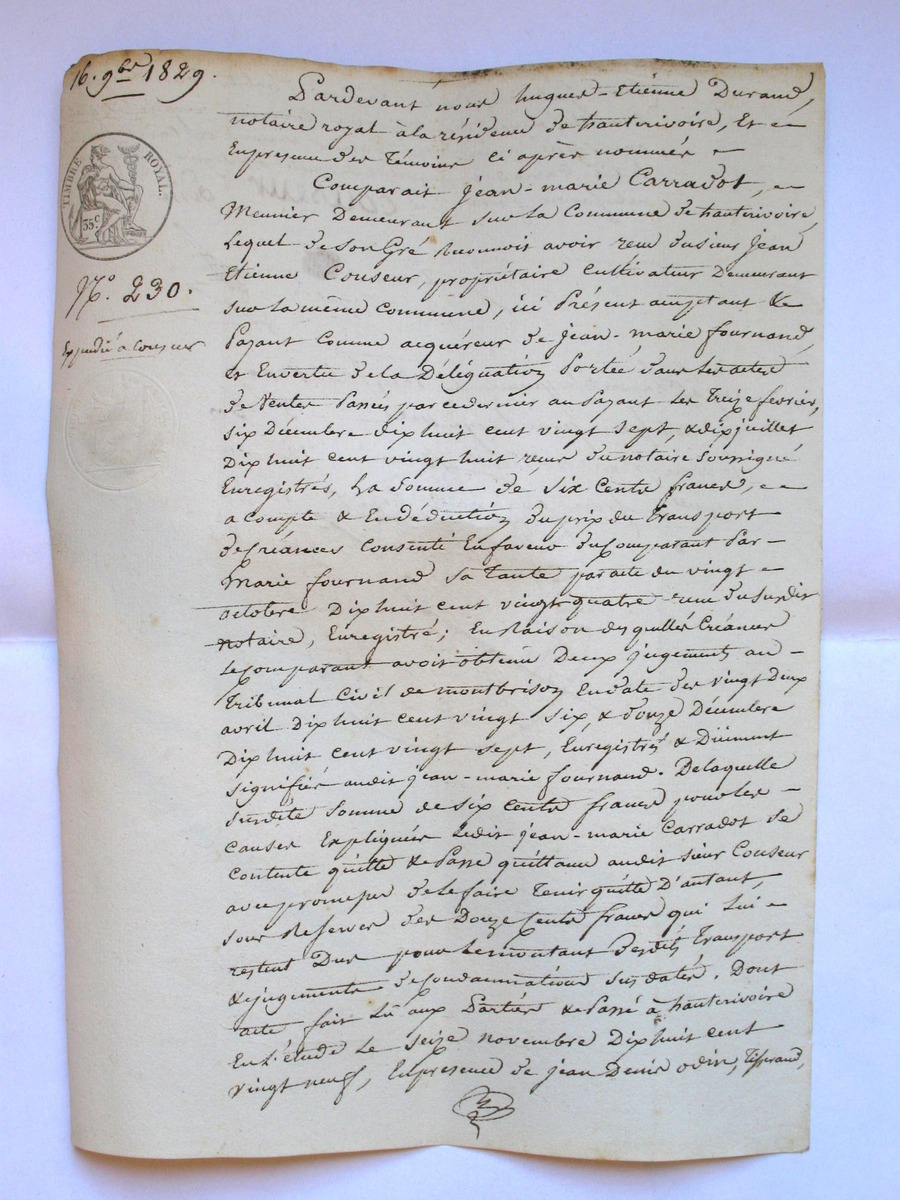 16. 9bre 1829.
TIMBRE ROYAL.
35c
No. 230.
Expédié à Couseur
Pardevant nous hugues-Etiénne Durand,
notaire royal à la résidence de hauterivoire, Et
En présence des Témoins ci après nommés
Comparait Jean-marie Carradot,
Meunier Demeurant sur la Commune de hauterivoire
Lequel de Son Gré reconnoit avoir reçu du sieur Jean
Etienne Couseur, propriétaire Cultivateur Demeurant
sur la même Commune, ici Présent acceptant &
Payant Comme acquéreur de Jean-marie fournand,
et En vertu de la Délégation Portée dans les actes
de Ventes Passés par ce dernier au Payant Les Treize février,
six Décembre dix huit cent vingt Sept, & dix juillet
Dix huit cent vingt huit reçus du notaire Soussigné
Enregistrés, La Somme de Six Cents francs,
a Compte & En déduction du prix du Transport
de Créances Consenti En faveur du Comparant Par
Marie fournand Sa Tante par acte du vingt
octobre Dix huit cent vingt quatre reçu du susdit
notaire, Enregistré; En Raison desquelles Créances
Le Comparant avoit obtenu Deux jugements au
Tribunal Civil de montbrison En date des vingt Deux
avril Dix huit cent vingt six, & douze Décembre
Dix huit cent vingt sept, Enregistrés & Düement
signifiés audit jean-marie fournand. De laquelle
susdite Somme de six cents francs pour les
causes Expliquées Ledit jean-marie Carradot se
Contente quitte & Passe quittance audit sieur Couseur
avec promesse de le faire Tenir quitte D'autant,
sous Réserve des Douze Cents francs qui Lui
restent Dus pour Le montant desdits Transport
& jugements de Condamnation susdatés. Dont
acte fait Lû aux Parties & Passé à hauterivoire
En L'étude Le Seize novembre Dix huit cent
vingt neuf, En présence de jean Denis odin, Tisserand,